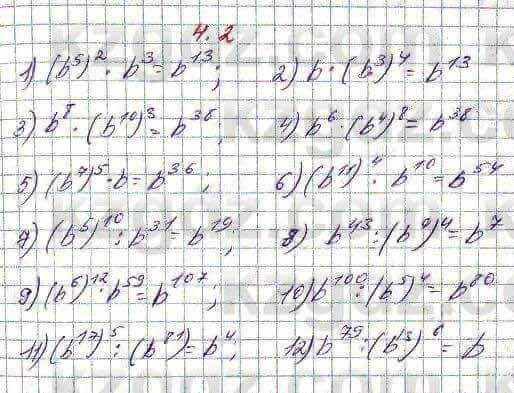 4.2
1) (b⁵)² · b³ = b¹³; 2) b · (b³)⁴ = b¹³
3) b⁸ · (b¹⁰)³ = b³⁸; 4) b⁶ · (b⁴)⁸ = b³⁸
5) (b⁷)⁵ · b = b³⁶; 6) (b¹¹)⁴ · b¹⁰ = b⁵⁴
7) (b⁵)¹⁰ : b³¹ = b¹⁹; 8) b⁴³ : (b⁹)⁴ = b⁷
9) (b⁶)¹² · b⁵⁹ = b¹⁰⁷; 10) b¹⁰⁰ : (b⁵)⁴ = b⁸⁰
11) (b¹⁷)⁵ : (b⁸¹) = b⁴; 12) b⁷⁹ : (b¹³)⁶ = b